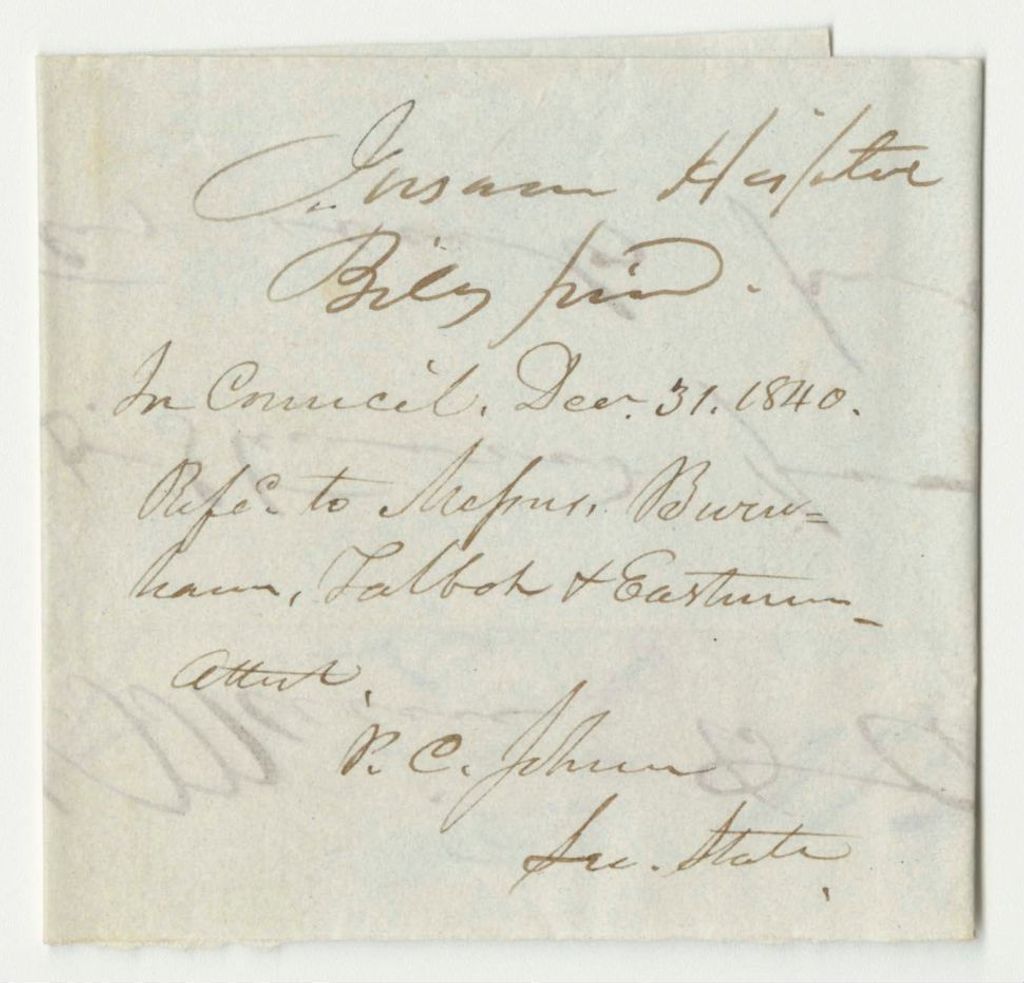 Insane Hospital
Bills paid.
In Council, Decr. 31. 1840.
Refd. to Messrs. Burn=
ham, Talbot & Eastman
Attest,
P. C. Johnson
Sec. State.